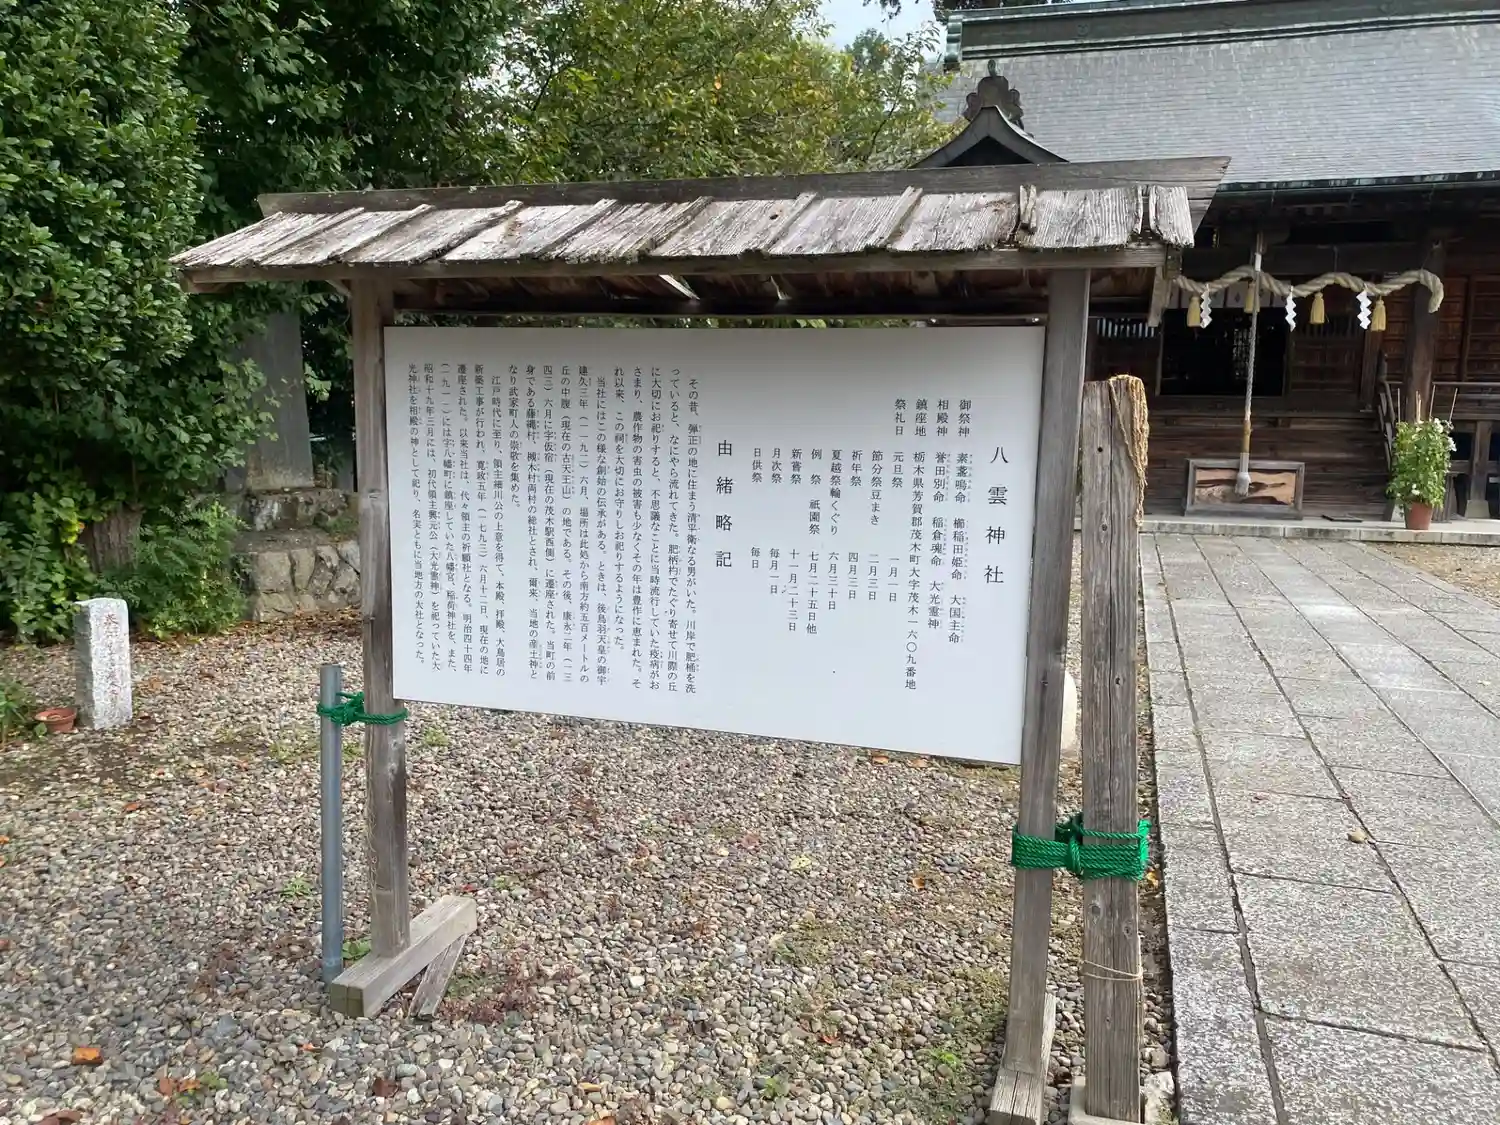 八雲神社
御祭神　素盞嗚命　櫛稲田姫命　大国主命
相殿神　誉田別命　稲倉魂命　大光霊神
鎮座地　栃木県芳賀郡茂木町大字茂木一六〇九番地
祭礼日　元旦祭　一月一日
節分祭豆まき　二月三日
祈年祭　四月三日
夏越祭輪くぐり　六月三十日
例祭　祇園祭　七月二十五日他
新嘗祭　十一月二十三日
月次祭　毎月一日
日供祭　毎日
由緒略記
その昔、弾正の地に住まう清平衛なる男がいた。川岸で肥桶を洗
っていると、なにやら流れてきた。肥柄杓でたぐり寄せて川際の丘
に大切にお祀りすると、不思議なことに当時流行していた疫病がお
さまり、農作物の害虫の被害も少なくその年は豊作に恵まれた。そ
れ以来、この祠を大切にお守りしお祀りするようになった。
当社にはこの様な創始の伝承がある。ときは、後鳥羽天皇の御宇
建久三年（一一九二）六月、場所は此処から南方約五百メートルの
丘の中腹（現在の古天王山）の地である。その後、康永二年（一三
四三）六月に字仮宿（現在の茂木駅西側）に遷座された。当町の前
身である藤縄村、槻木村両村の総社とされ、爾来、当地の産土神と
なり武家町人の崇敬を集めた。
江戸時代に至り、領主細川公の上意を得て、本殿、拝殿、大鳥居の
新築工事が行われ、寛政五年（一七九三）六月十二日、現在の地に
遷座された。以来当社は、代々領主の祈願社となる。明治四十四年
（一九一一）には字八幡町に鎮座していた八幡宮、稲荷神社を、また、
昭和十九年三月には、初代領主興元公（大光霊神）を祀っていた大
光神社を相殿の神として祀り、名実ともに当地方の大社となった。